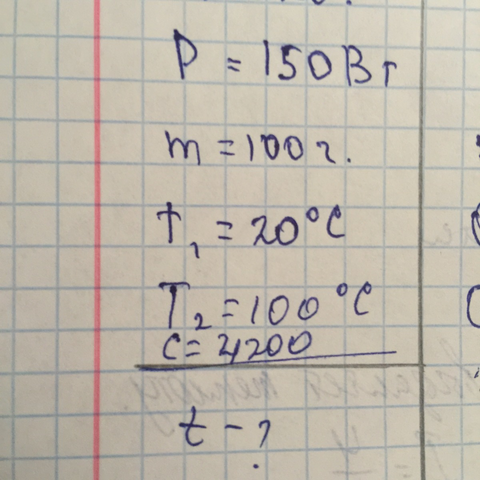 P = 150Вт
m = 100 г.
t₁ = 20°C
T₂ = 100°C
c = 4200
t - ?